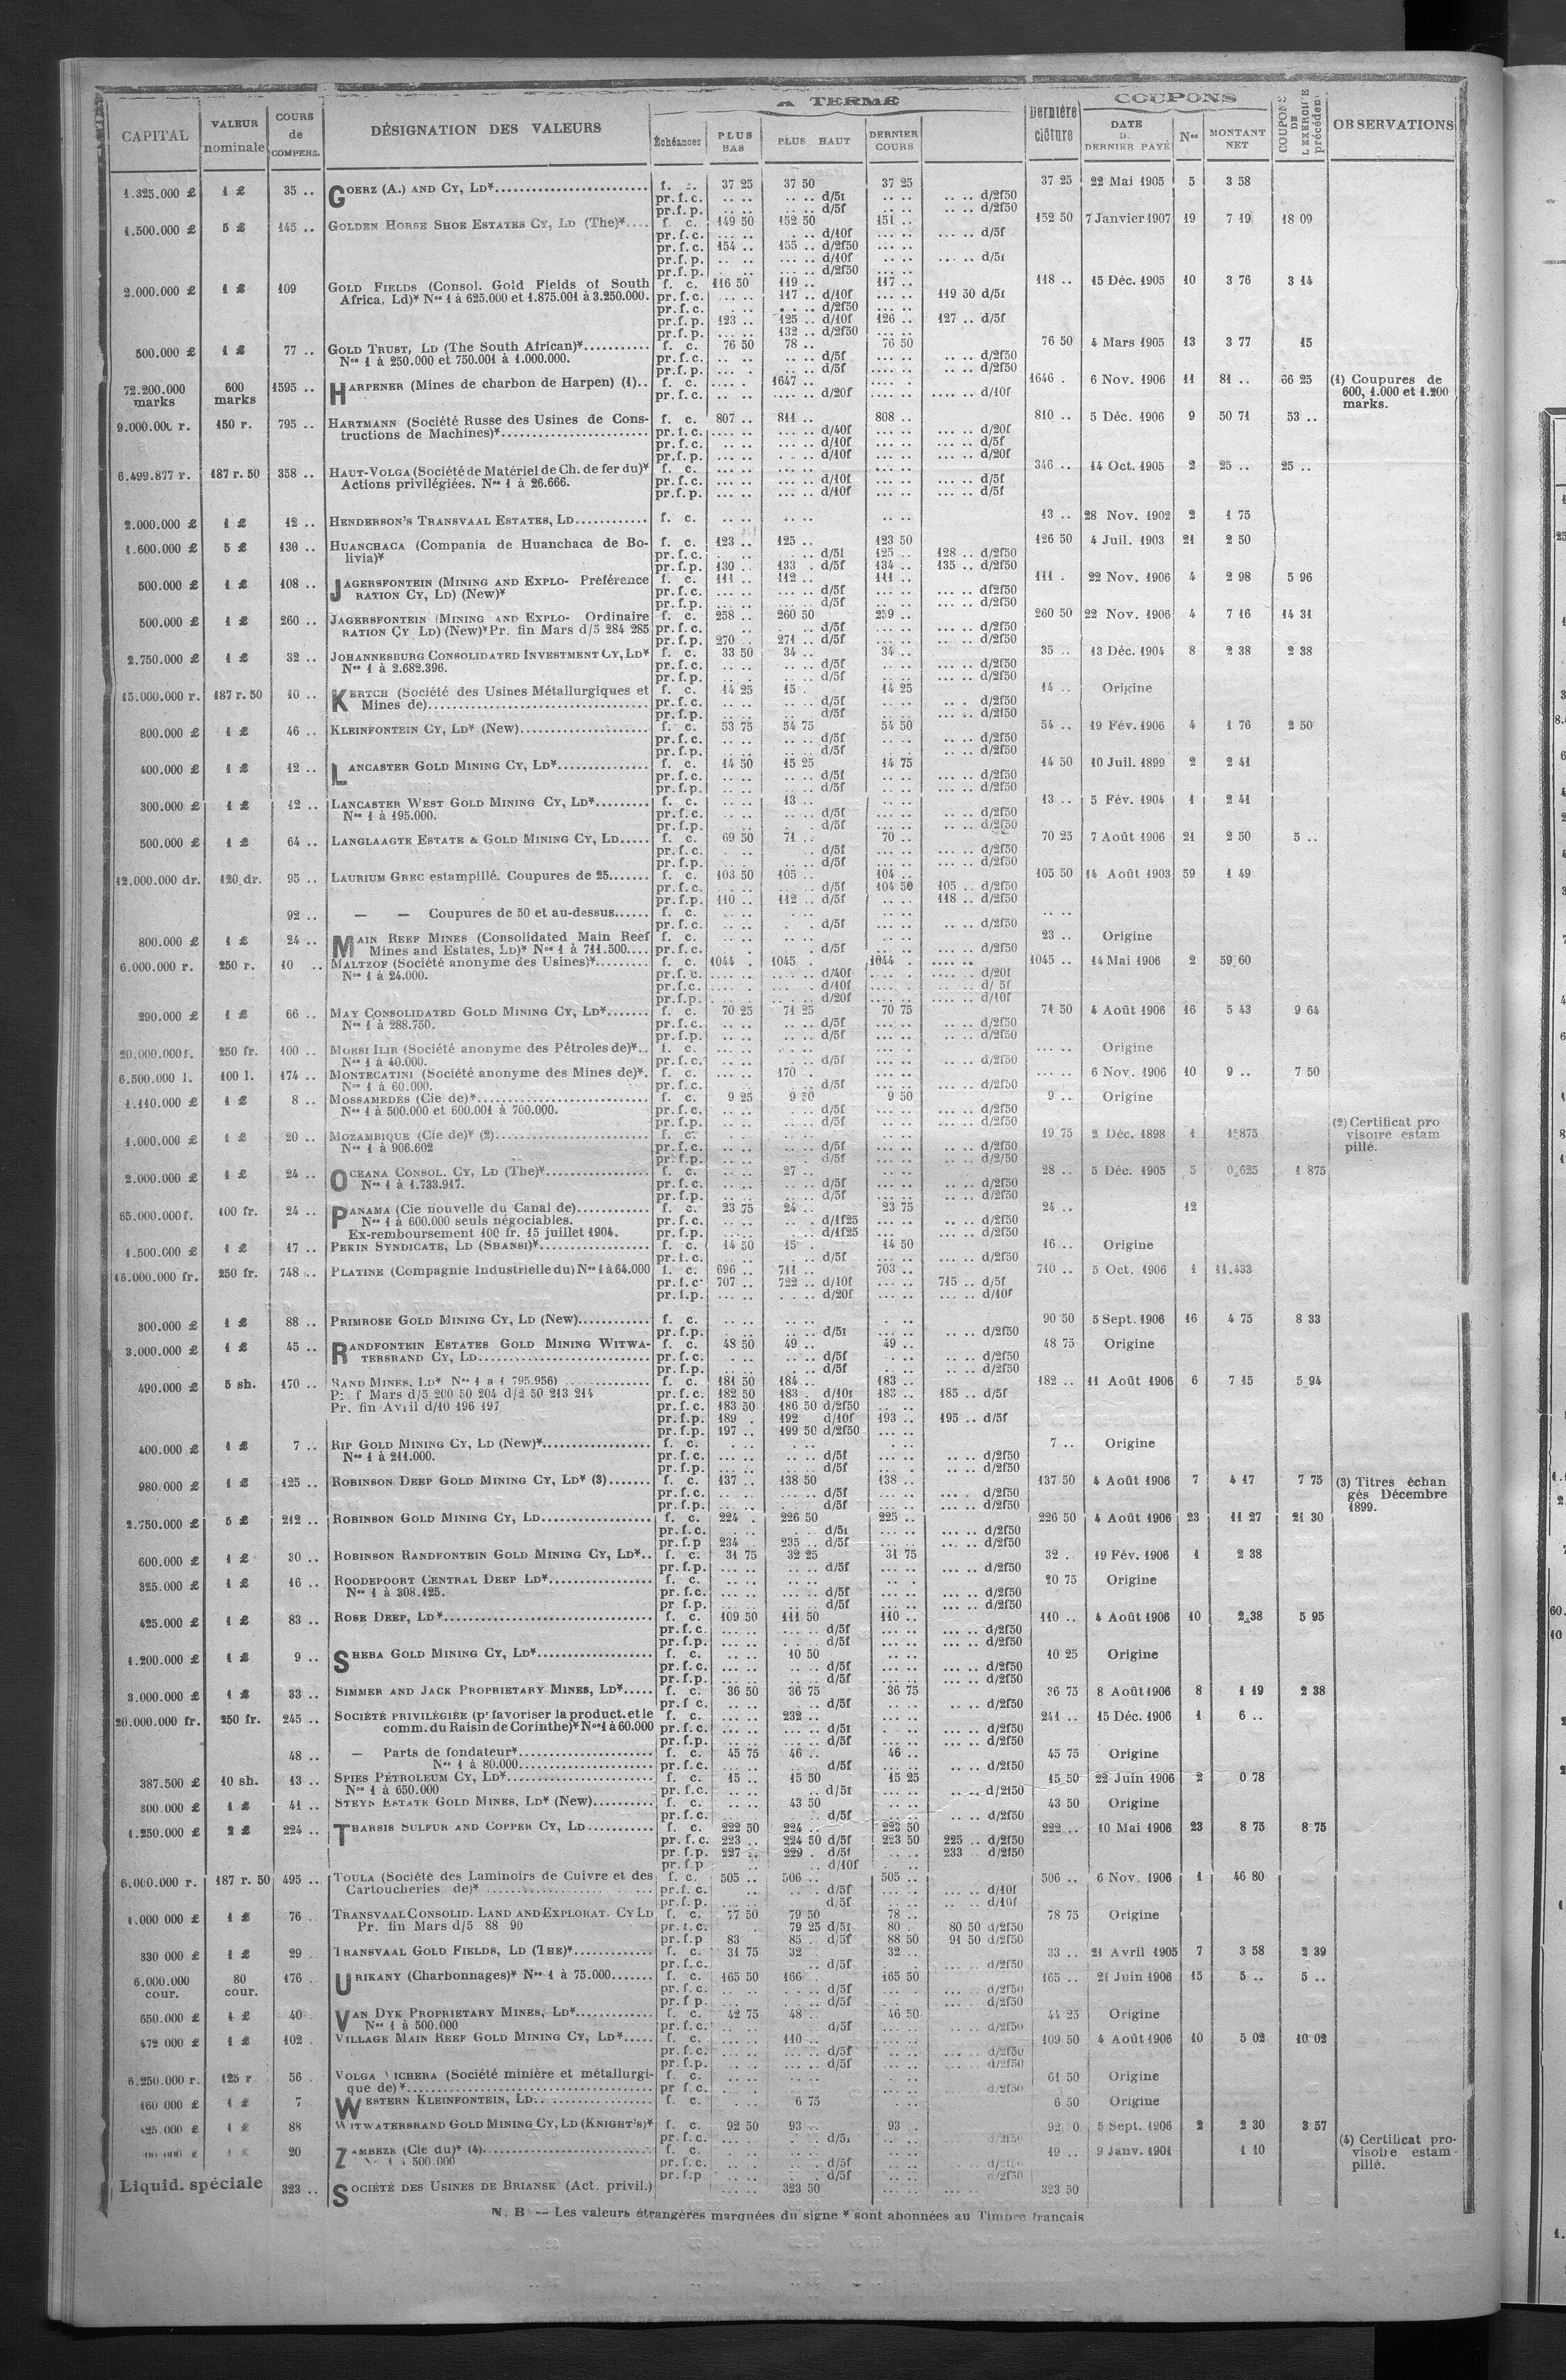 A TERME
COUPONS
CAPITAL VALEUR nominale COURS de COMPENS. DÉSIGNATION DES VALEURS Échéances PLUS BAS PLUS HAUT DERNIER COURS Dernière clôture DATE DERNIER PAYÉ Nos MONTANT NET COUPONS DE L'EXERCICE précédent OBSERVATIONS
1.325.000 £ 1 £ 35 .. GOERZ (A.) AND CY, LD*.......... f. c. 37 25 37 50 37 25 37 25 22 Mai 1905 5 3 58
pr.f.c. .. .. .. .. d/5f .. .. .. .. d/2f50
pr.f.p. .. .. .. .. d/5f .. .. .. .. d/2f50
1.500.000 £ 5 £ 145 .. GOLDEN HORSE SHOE ESTATES CY, LD (The)*.... f. c. 149 50 152 50 151 .. 152 50 7 Janvier 1907 19 7 19 18 09
pr.f.c. ... .. . .. d/10f ... .. ... .. d/5f
pr.f.c. 154 .. 155 .. d/2f50 ... ..
pr.f.p. .. .. ... .. d/10f ... .. ... .. d/5f
pr.f.p. .. . ... .. d/2f50 ... ..
2.000.000 £ 1 £ 109 GOLD FIELDS (Consol. Gold Fields of South f. c. 116 50 119 .. 117 .. 118 .. 15 Déc. 1905 10 3 76 3 14
Africa, Ld)* Nos 1 à 625.000 et 1.875.001 à 3.250.000. pr.f.c. ... .. 117 .. d/10f ... .. 119 50 d/5f
pr.f.c. . .. .. .. d/2f50 ... ..
pr.f.p. 123 .. 125 .. d/10f 126 .. 127 .. d/5f
pr.f.p. ... .. 132 .. d/2f50 ... ..
500.000 £ 1 £ 77 .. GOLD TRUST, LD (The South African)*........... f. c. 76 50 78 .. 76 50 76 50 4 Mars 1905 13 3 77 15
Nos 1 à 250.000 et 750.001 à 1.000.000. pr.f.c. .. .. .. .. d/5f .. .. .. .. d/2f50
pr.f.p. ... . .. .. d/5f .. .. .. .. d/2f50
72.200.000 marks 600 marks 1595 .. HARPENER (Mines de charbon de Harpen) (1).. f. c. .... . 1647 .. .... . 1646 . 6 Nov. 1906 11 81 .. 66 25 (1) Coupures de
pr.f.c. ... .. .... .. d/20f .... .. .... .. d/10f 600, 1.000 et 1.200
marks.
9.000.000 r. 150 r. 795 .. HARTMANN (Société Russe des Usines de Cons- f. c. 807 .. 811 .. 808 .. 810 .. 5 Déc. 1906 9 50 71 53 ..
tructions de Machines)*....................... pr.f.c. ... .. ... .. d/40f ... .. ... .. d/20f
pr.f.c. ... .. ... .. d/10f ... .. ... .. d/5f
pr.f.p. ... .. ... .. d/10f ... .. ... .. d/20f
6.499.877 r. 187 r. 50 358 .. HAUT-VOLGA (Société de Matériel de Ch. de fer du)* f. c. ... .. ... .. ... .. 346 .. 14 Oct. 1905 2 25 .. 25 ..
Actions privilégiées. Nos 1 à 26.666. pr.f.c. ... .. ... .. d/10f ... .. ... .. d/5f
pr.f.p. ... .. ... .. d/10f ... .. ... .. d/5f
2.000.000 £ 1 £ 12 .. HENDERSON'S TRANSVAAL ESTATES, LD............ f. c. .. .. .. .. .. .. 13 .. 28 Nov. 1902 2 1 75
1.600.000 £ 5 £ 130 .. HUANCHACA (Compania de Huanchaca de Bo- f. c. 123 .. 125 .. 123 50 126 50 4 Juil. 1903 21 2 50
livia)* pr.f.c. . .. ... .. d/5f 125 .. 128 .. d/2f50
pr.f.p. 130 .. 133 . d/5f 134 .. 135 .. d/2f50
500.000 £ 1 £ 108 .. JAGERSFONTEIN (MINING AND EXPLO- Préférence f. c. 111 .. 112 .. 111 .. 111 . 22 Nov. 1906 4 2 98 5 96
RATION CY, LD) (New)* pr.f.c. ... .. ... .. d/5f ... .. ... .. d/2f50
pr.f.p. ... .. ... .. d/5f ... .. ... .. d/2f50
500.000 £ 1 £ 260 .. JAGERSFONTEIN (MINING AND EXPLO- Ordinaire f. c. 258 .. 260 50 259 .. 260 50 22 Nov. 1906 4 7 16 14 31
RATION CY LD) (New)* Pr. fin Mars d/5 284 285 pr.f.c. .. ... .. d/5f ... .. ... .. d/2f50
pr.f.p. 270 .. 271 .. d/5f ... .. ... .. d/2f50
2.750.000 £ 1 £ 32 .. JOHANNESBURG CONSOLIDATED INVESTMENT CY, LD* f. c. 33 50 34 .. 34 .. 35 .. 13 Déc. 1904 8 2 38 2 38
Nos 1 à 2.682.396. pr.f.c. .. .. .. .. d/5f .. .. .. .. d/2f50
pr.f.p. .. . .. .. d/5f .. .. .. .. d/2f50
15.000.000 r. 187 r. 50 10 .. KERTCH (Société des Usines Métallurgiques et f. c. 14 25 15 . 14 25 14 .. Origine
Mines de)................................... pr.f.c. .. .. .. .. d/5f .. .. .. . d/2f50
pr.f.p. .. .. .. .. d/5f .. .. .. .. d/2f50
800.000 £ 1 £ 46 .. KLEINFONTEIN CY, LD* (New).................... f. c. 53 75 54 75 54 50 54 .. 19 Fév. 1906 4 1 76 2 50
pr.f.c. .. .. .. .. d/5f .. .. .. .. d/2f50
pr.f.p. .. .. .. .. d/5f .. . .. .. d/2f50
400.000 £ 1 £ 12 .. LANCASTER GOLD MINING CY, LD*............... f. c. 14 50 15 25 14 75 14 50 10 Juil. 1899 2 2 41
pr.f.c. .. .. .. .. d/5f .. .. .. .. d/2f50
pr.f.p. .. .. .. .. d/5f .. .. .. .. d/2f50
300.000 £ 1 £ 12 .. LANCASTER WEST GOLD MINING CY, LD*......... f. c. .. .. 13 .. .. .. 13 .. 5 Fév. 1904 1 2 41
Nos 1 à 195.000. pr.f.c. .. .. .. .. d/5f .. .. .. .. d/2f50
pr.f.p. .. . . d/5f .. .. .. .. d/2f50
500.000 £ 1 £ 64 .. LANGLAAGTE ESTATE & GOLD MINING CY, LD..... f. c. 69 50 71 .. 70 .. 70 25 7 Août 1906 21 2 50 5 ..
pr.f.c. . .. .. .. d/5f .. .. .. .. d/2f50
pr.f.p. .. . .. .. d/5f .. .. .. .. d/2f50
12.000.000 dr. 120 dr. 95 .. LAURIUM GREC estampillé. Coupures de 25....... f. c. 103 50 105 .. 104 .. 105 50 14 Août 1903 59 1 49
pr.f.c. . .. .. .. d/5f 104 50 105 .. d/2f50
pr.f.p. 110 .. 112 .. d/5f ... .. 118 .. d/2f50
92 .. — — Coupures de 50 et au-dessus...... f. c. .. .. . . .. .. .. ..
pr.f.c. .. .. . . d/5f .. .. .. .. d/2f50
800.000 £ 1 £ 24 .. MAIN REEF MINES (Consolidated Main Reef f. c. .. .. 23 .. Origine
Mines and Estates, LD)* Nos 1 à 711.500.... pr.f.c. . . d/5f .. .. .. .. d/2f50
6.000.000 r. 250 r. 10 .. MALTZOF (Société anonyme des Usines)*......... f. c. 1044 . 1045 . 1044 . 1045 .. 14 Mai 1906 2 59 60
Nos 1 à 24.000. pr.f.c. .... . .... . d/40f .... . .... .. d/20f
pr.f.c. .... . .... . d/10f .... . .... .. d/ 5f
pr.f.p. .... . .... . d/20f .... . .... .. d/10f
290.000 £ 1 £ 66 .. MAY CONSOLIDATED GOLD MINING CY, LD*....... f. c. 70 25 71 25 70 75 71 50 4 Août 1906 16 5 43 9 64
Nos 1 à 288.750. pr.f.c. .. .. .. .. d/5f .. .. .. .. d/2f50
pr.f.p. .. .. .. .. d/5f .. .. .. .. d/2f50
20.000.000 f. 250 fr. 100 .. MOESI ILIR (Société anonyme des Pétroles de)*.. f. c. ... .. ... .. ... .. ... .. Origine
Nos 1 à 40.000. pr.f.c. ... .. ... .. d/5f ... .. ... .. d/2f50
6.500.000 l. 100 l. 174 .. MONTECATINI (Société anonyme des Mines de)*. f. c. ... .. 170 . ... .. ... .. 6 Nov. 1906 10 9 .. 7 50
Nos 1 à 60.000. pr.f.c. ... .. . .. d/5f ... .. ... .. d/2f50
1.110.000 £ 1 £ 8 .. MOSSAMEDÈS (Cie de)*.......................... f. c. 9 25 9 50 9 50 9 .. Origine
Nos 1 à 500.000 et 600.001 à 700.000. pr.f.c. .. .. .. .. d/5f .. .. .. .. d/2f50
pr.f.p. .. .. .. .. d/5f .. .. .. .. d/2f50 (2) Certificat pro
1.000.000 £ 1 £ 20 .. MOZAMBIQUE (Cie de)* (2)...................... f. c. 19 75 2 Déc. 1898 1 1 875 visoire estam
Nos 1 à 906.602 pr.f.c. .. .. .. .. d/5f .. .. .. .. d/2f50 pillé.
pr.f.p. .. .. .. .. d/5f .. .. .. .. d/2/50
2.000.000 £ 1 £ 24 .. OCEANA CONSOL. CY, LD (The)*................ f. c. .. .. 27 .. .. .. 28 .. 5 Déc. 1905 5 0 625 1 875
Nos 1 à 1.733.917. pr.f.c. .. .. .. .. d/5f .. .. .. .. d/2f50
pr.f.p. .. .. .. .. d/5f .. .. .. .. d/2f50
65.000.000 f. 100 fr. 24 .. PANAMA (Cie nouvelle du Canal de)............ f. c. 23 75 24 .. 23 75 24 .. 12
Nos 1 à 600.000 seuls négociables. pr.f.c. .. .. .. . d/1f25 ... .. .. . d/2f50
Ex-remboursement 100 fr. 15 juillet 1904. pr.f.p. .. .. .. . d/1f25 ... .. .. d/2f50
1.500.000 £ 1 £ 17 .. PEKIN SYNDICATE, LD (SHANSI)*................. f. c. 14 50 15 . 14 50 16 .. Origine
pr.f.c. .. .. . .. d/5f ... .. .. .. d/2f50
16.000.000 fr. 250 fr. 748 .. PLATINE (Compagnie Industrielle du) Nos 1 à 64.000 f. c. 696 .. 711 .. 703 .. 710 .. 5 Oct. 1906 1 11.433
pr.f.c. 707 .. 722 .. d/10f ... .. 715 .. d/5f
pr.f.p. ... .. ... .. d/20f ... .. ... .. d/10f
300.000 £ 1 £ 88 .. PRIMROSE GOLD MINING CY, LD (New)............ f. c. .. .. .. .. .. .. 90 50 5 Sept. 1906 16 4 75 8 33
pr.f.p. .. .. .. .. d/5f .. .. .. .. d/2f50
3.000.000 £ 1 £ 45 .. RANDFONTEIN ESTATES GOLD MINING WITWA- f. c. 48 50 49 .. 49 .. 48 75 Origine
TERSRAND CY, LD........................... pr.f.c. .. .. .. . d/5f .. .. .. .. d/2f50
pr.f.p. .. .. . .. d/5f .. .. .. .. d/2f50
490.000 £ 5 sh. 170 .. RAND MINES, LD* Nos 1 à 1 795.956) ............. f. c. 181 50 184 .. 183 .. 182 .. 11 Août 1906 6 7 15 5 94
Pr. f Mars d/5 200 50 204 d/2 50 213 214 pr.f.c. 182 50 183 . d/10f 183 .. 185 .. d/5f
Pr. fin Avril d/10 196 197 pr.f.c. 183 50 186 50 d/2f50 .. ..
pr.f.p. 189 . 192 d/10f 193 .. 195 .. d/5f
pr.f.p. 197 .. 199 50 d/2f50 ... ..
400.000 £ 1 £ 7 .. RIP GOLD MINING CY, LD (New)*................. f. c. . .. . .. .. .. 7 .. Origine
Nos 1 à 211.000. pr.f.c. .. .. .. .. d/5f .. .. .. .. d/2f50
pr.f.p. .. .. .. .. d/5f .. .. .. . d/2f50
980.000 £ 1 £ 125 .. ROBINSON DEEP GOLD MINING CY, LD* (3)....... f. c. 137 .. 138 50 138 .. 137 50 4 Août 1906 7 4 17 7 75 (3) Titres échan
pr.f.c. ... .. ... .. d/5f ... .. ... . d/2f50 gés Décembre
pr.f.p. ... .. ... .. d/5f ... .. ... .. d/2f50 1899.
2.750.000 £ 5 £ 212 .. ROBINSON GOLD MINING CY, LD................. f. c. 224 . 226 50 225 .. 226 50 4 Août 1906 23 11 27 21 30
pr.f.c. ... .. . .. d/5f ... .. ... .. d/2f50
pr.f.p 234 .. 235 .. d/5f ... .. ... .. d/2f50
600.000 £ 1 £ 30 .. ROBINSON RANDFONTEIN GOLD MINING CY, LD*.. f. c. 31 75 32 25 31 75 32 . 19 Fév. 1906 1 2 38
pr.f.p. .. .. .. .. d/5f .. .. ... .. d/2f50
325.000 £ 1 £ 16 .. ROODEPOORT CENTRAL DEEP LD*............... f. c. .. .. .. .. .. .. 20 75 Origine
Nos 1 à 308.125. pr.f.c. ... .. ... .. d/5f ... .. ... .. d/2f50
pr f.p. ... .. ... .. d/5f ... .. ... .. d/2f50
425.000 £ 1 £ 83 .. ROSE DEEP, LD*................................ f. c. 109 50 111 50 110 .. 110 .. 4 Août 1906 10 2 38 5 95
pr.f.c. ... .. ... .. d/5f ... .. ... .. d/2f50
pr.f.p. ... .. ... .. d/5f ... .. ... .. d/2f50
1.200.000 £ 1 £ 9 .. SHEBA GOLD MINING CY, LD*.................. f. c. .. .. 10 50 .. .. 10 25 Origine
pr.f.c. ... .. .. .. d/5f ... .. .. .. d/2f50
pr.f.p. ... .. .. .. d/5f ... .. .. .. d/2f50
3.000.000 £ 1 £ 33 .. SIMMER AND JACK PROPRIETARY MINES, LD*..... f. c. 36 50 36 75 36 75 36 75 8 Août 1906 8 1 19 2 38
pr.f c. .. .. .. .. d/5f .. .. .. .. d/2f50
20.000.000 fr. 250 fr. 245 .. SOCIÉTÉ PRIVILÉGIÉE (pr favoriser la product. et le f. c. ... .. 232 .. ... .. 241 .. 15 Déc. 1906 1 6 ..
comm. du Raisin de Corinthe)* Nos 1 à 60.000 pr.f.c. ... .. ... .. d/5f . .. ... .. d/2f50
pr.f.p. ... .. ... .. d/5f ... .. ... .. d/2f50
48 .. — Parts de fondateur*...................... f. c. 45 75 46 .. 46 .. 45 75 Origine
Nos 1 à 80.000....................... pr.f.c. .. .. .. .. d/5f .. .. .. .. d/2f50
387.500 £ 10 sh. 13 .. SPIES PÉTROLEUM CY, LD*....................... f. c. 15 .. 15 50 15 25 15 50 22 Juin 1906 2 0 78
Nos 1 à 650.000 pr.f.c. .. .. .. d/5f ... .. .. .. d/2f50
300.000 £ 1 £ 41 .. STEYN ESTATE GOLD MINES, LD* (New).......... f. c. .. .. 43 50 .. .. 43 50 Origine
pr.f.c. .. .. .. d/5f .. .. .. .. d/2f50
1.250.000 £ 2 £ 224 .. THARSIS SULFUR AND COPPER CY, LD........... f. c. 222 50 224 .. 223 50 222 .. 10 Mai 1906 23 8 75 8 75
pr. f. c. 223 .. 224 50 d/5f 223 50 225 .. d/2f50
pr. f.p. 227 .. 229 . d/5f .. .. 233 d/2f50
pr. f.p .. .. .. d/10f
6.000.000 r. 187 r. 50 495 .. TOULA (Société des Laminoirs de Cuivre et des f. c. 505 .. 506 .. 505 .. 506 .. 6 Nov. 1906 1 46 80
Cartoucheries de)* ..................... pr.f.c. .. ... .. d/5f ... .. ... .. d/10f
pr.f.p. ... .. d/5f .. .. .. .. d/10f
1.000 000 £ 1 £ 76 . TRANSVAAL CONSOLID. LAND AND EXPLORAT. CY LD f. c. 77 50 79 50 78 .. 78 75 Origine
Pr. fin Mars d/5 88 90 pr.f.c. . 79 25 d/5f 80 . 80 50 d/2f50
pr.f.p 83 85 . d/5f 88 50 91 50 d/2f50
330 000 £ 1 £ 29 . TRANSVAAL GOLD FIELDS, LD (THE)*............. f. c. 31 75 32 32 .. 33 .. 21 Avril 1905 7 3 58 2 39
pr.f.c. .. .. .. d/5f .. .. .. .. d/2f50
6.000.000 cour. 80 cour. 176 . URIKANY (Charbonnages)* Nos 1 à 75.000....... f. c. 165 50 166 .. 165 50 165 .. 21 Juin 1906 15 5 .. 5 ..
pr.f.c. ... .. . .. d/5f ... .. d/2f50
pr f p. ... .. ... .. ... .. d/2f50
650.000 £ 1 £ 40 . VAN DYK PROPRIETARY MINES, LD*............. f. c. 42 75 48 .. 46 50 44 25 Origine
Nos 1 à 500.000 pr.f.c. .. .. d/5f .. .. d/2f50
472 000 £ 1 £ 102 . VILLAGE MAIN REEF GOLD MINING CY, LD*..... f. c. ... .. 110 .. ... .. 109 50 4 Août 1906 10 5 02 10 02
pr.f.c. ... .. ... .. d/5f ... .. d/2f50
pr.f.p. ... .. ... .. d/5f ... .. d/2f50
6.250.000 r. 125 r 56 . VOLGA VICHERA (Société minière et métallurgi- f. c. .. .. 61 50 Origine
que de)*..................................... pr f.c. .. .. d/2f50
160 000 £ 1 £ 7 . WESTERN KLEINFONTEIN, LD................... f. c. .. . 6 75 .. .. 6 50 Origine
425.000 £ 1 £ 88 WITWATERSRAND GOLD MINING CY, LD (KNIGHT'S)* f. c. 92 50 93 .. 93 .. 92 0 5 Sept. 1906 2 2 30 3 57
pr.f.c. ... .. .. .. d/5f .. .. d/2f50 (4) Certificat pro-
20 ZAMBEZE (Cie du)* (4)......................... f. c. .. .. 19 .. 9 Janv. 1901 1 10 visoire estam-
1 à 500.000 pr.f.c. .. .. .. .. d/5f .. .. pillé.
pr.f.p .. .. .. .. d/5f .. .. d/2f50
Liquid. spéciale 323 .. SOCIÉTÉ DES USINES DE BRIANSK (Act. privil.) ... .. 323 50 ... .. 323 50
N. B — Les valeurs étrangères marquées du signe * sont abonnées au Timbre français